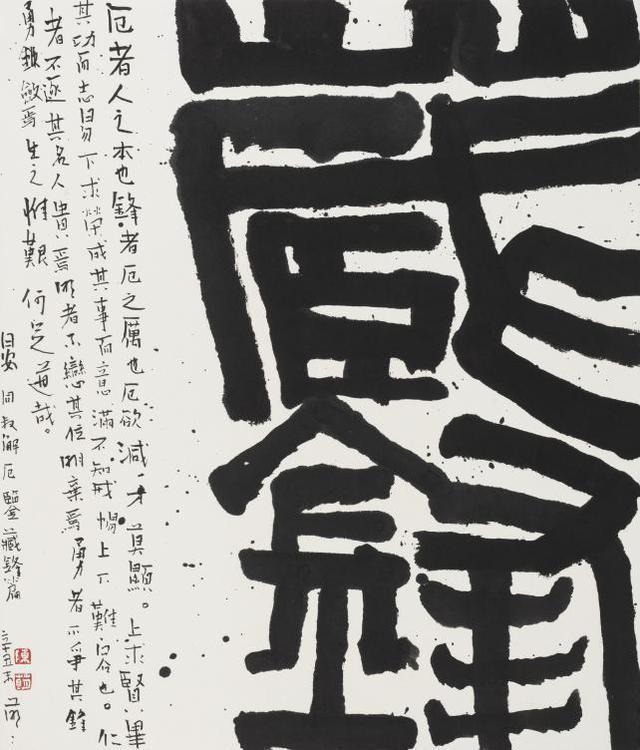 藏鋒
厄者人之本也鋒者厄之厲也厄欲減才莫顯。上求賢畢
其功而志易下求榮成其事而意滿不知戒惕上下難容也。仁
者不逐其名人貴焉明者不戀其位明棄焉勇者不爭其鋒
勇鋒斂焉生之惟艱何足道哉。
晏同叔解厄鑒藏鋒篇